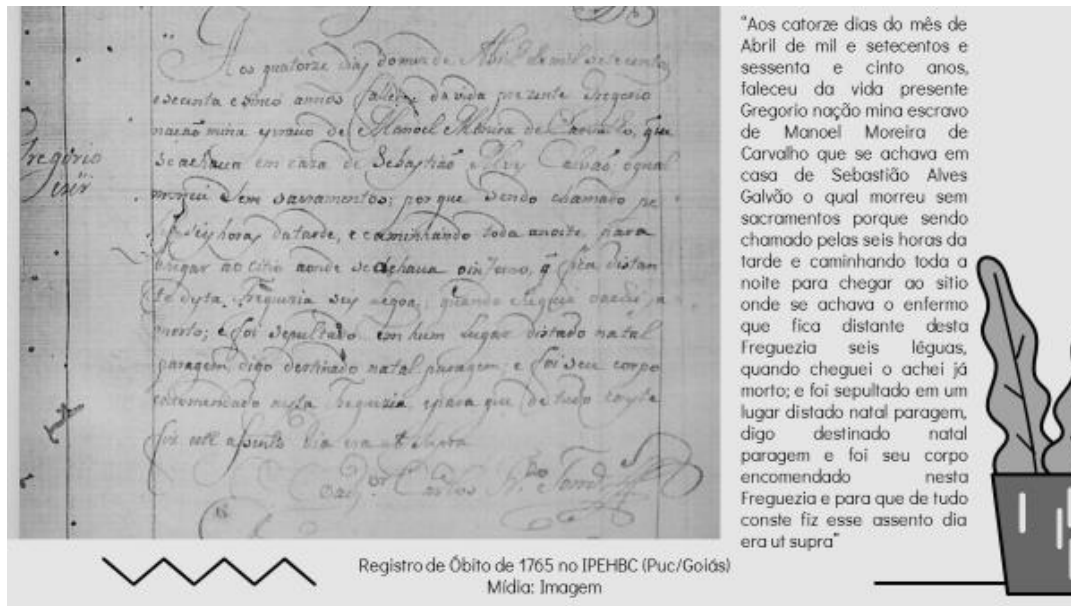 Aos quatorze dias do mes de Abril de mil setecentos
esecenta e sinco annos falleceu da vida prezente Gregorio
nacaõ mina escravo de Manoel Moreira de Carvalho, que
seachava em caza de Sebastiaõ Alvz Galvaõ oqual
morreu sem sacramentos; porque sendo chamado pe
las seis horas datarde, e caminhando toda anoite para
chegar ao citio aonde seachava oinfermo, q fica distan
te desta Freguezia seis legoas; quando cheguei oachei ja
morto; e foi sepultado em hum lugar distado natal
paragem, digo destinado natal paragem, e foi seu corpo
encomendado nesta Freguezia, epara que de tudo conste
fiz este assento dia era ut supra
Carlos
Gregorio
"Aos catorze dias do mês de
Abril de mil e setecentos e
sessenta e cinto anos,
faleceu da vida presente
Gregorio nação mina escravo
de Manoel Moreira de
Carvalho que se achava em
casa de Sebastião Alves
Galvão o qual morreu sem
sacramentos porque sendo
chamado pelas seis horas da
tarde e caminhando toda a
noite para chegar ao sitio
onde se achava o enfermo
que fica distante desta
Freguezia seis léguas,
quando cheguei o achei já
morto; e foi sepultado em um
lugar distado natal paragem,
digo destinado natal
paragem e foi seu corpo
encomendado nesta
Freguezia e para que de tudo
conste fiz esse assento dia
era ut supra"
Registro de Óbito de 1765 no IPEHBC (Puc/Goiás)
Mídia: Imagem